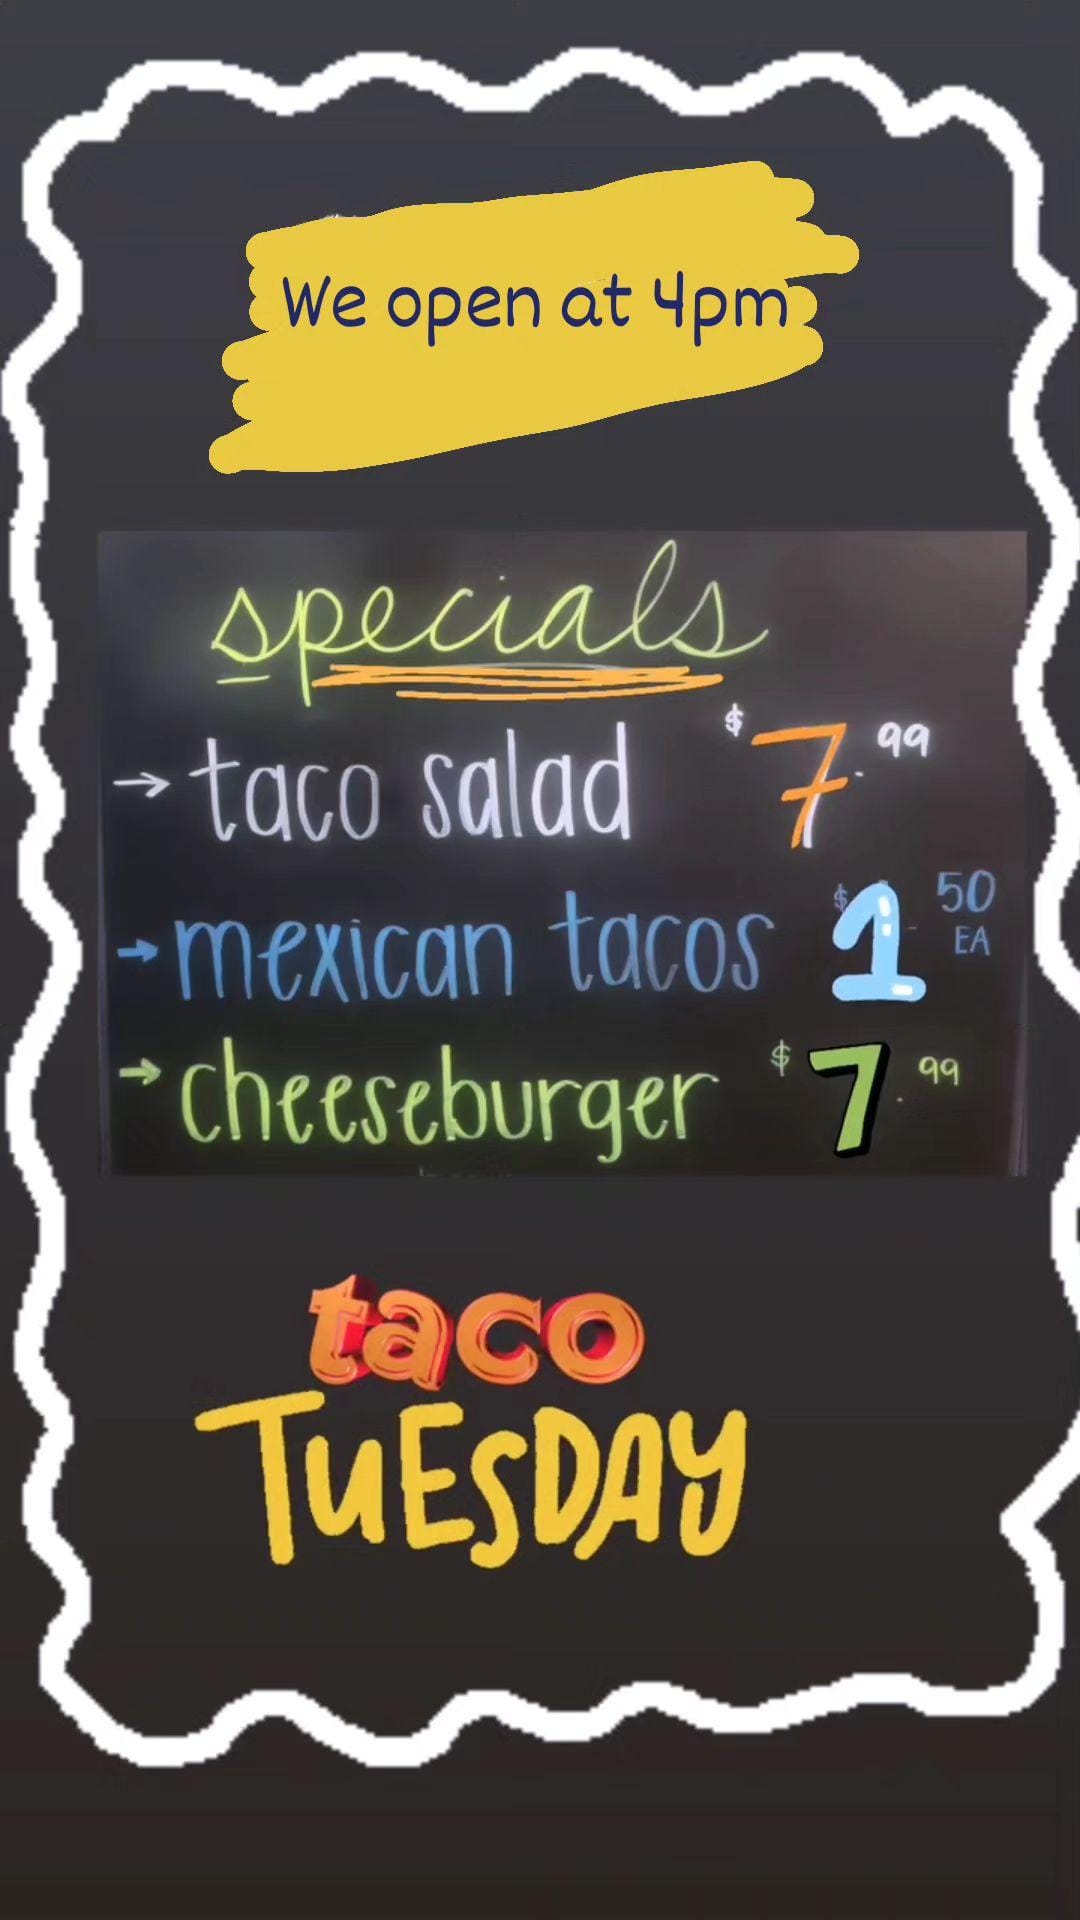 We open at 4pm
specials
→ taco salad $7.99
→ mexican tacos $1.50 EA
→ cheeseburger $7.99
taco
TUESDAY